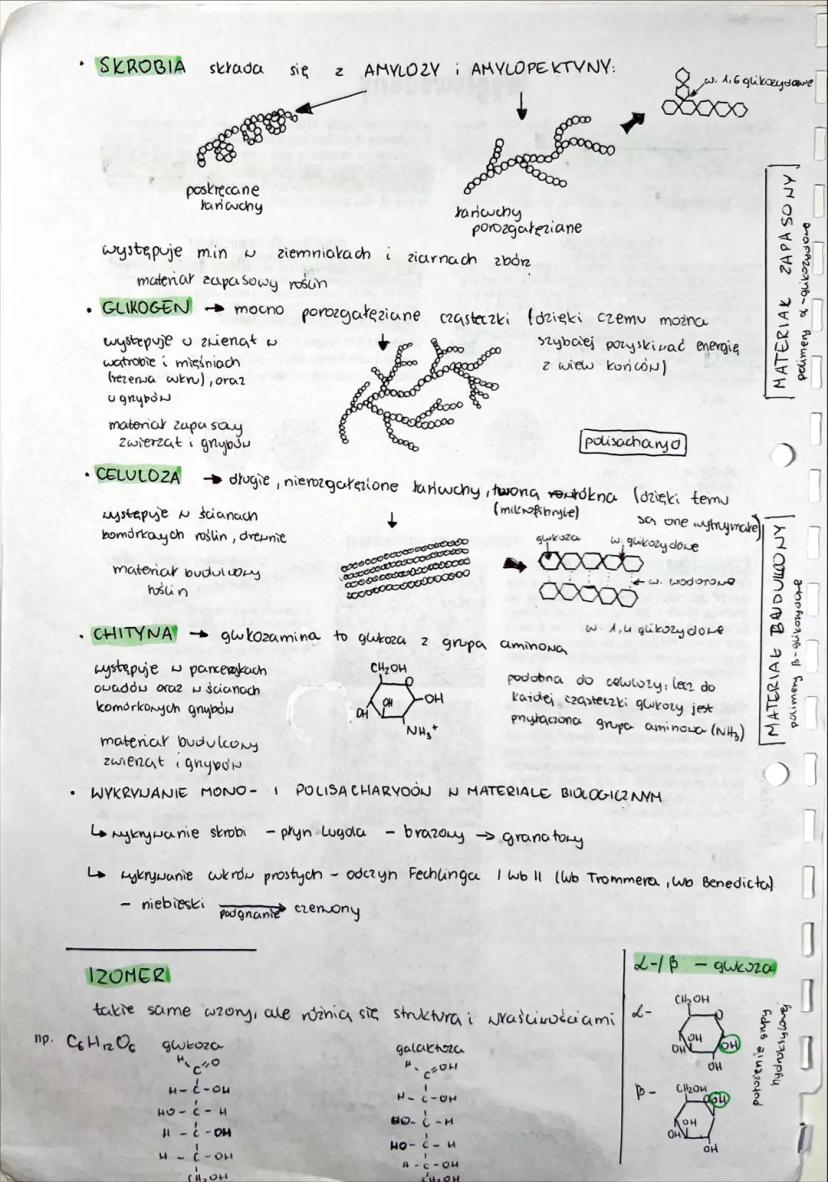 • SKROBIA składa się z AMYLOZY i AMYLOPEKTYNY:
w. 1,6 glikozydowe
poskręcane
łańcuchy
łańcuchy
porozgałęziane
występuje min w ziemniakach i ziarnach zbóż
materiał zapasowy roślin
• GLIKOGEN → mocno porozgałęziane cząsteczki (dzięki czemu można
szybciej pozyskiwać energię
z wielu końców)
występuje u zwierząt w
wątrobie i mięśniach
(rezerwa cukru), oraz
u grzybów
materiał zapasowy
zwierząt i grzybów
polisacharyd
MATERIAŁ ZAPASOWY
polimery α-glikozydowe
• CELULOZA → długie, nierozgałęzione łańcuchy, tworzą włókna (dzięki temu
(mikrofibryle)
są one wytrzymałe)
występuje w ścianach
komórkowych roślin, drewnie
materiał budulcowy
roślin
glukoza
w. glikozydowe
w. wodorowe
w. 1,4 glikozydowe
• CHITYNA → glukozamina to glukoza z grupą aminową
występuje w pancerzykach
owadów oraz w ścianach
komórkowych grzybów
materiał budulcowy
zwierząt i grzybów
CH₂OH
O
OH
OH
OH
NH₃⁺
podobna do celulozy, lecz do
każdej cząsteczki glukozy jest
przyłączona grupa aminowa (NH₃)
MATERIAŁ BUDULCOWY
polimery β-glikozydowe
• WYKRYWANIE MONO- I POLISACHARYDÓW W MATERIALE BIOLOGICZNYM
↳ wykrywanie skrobi - płyn Lugola - brązowy → granatowy
↳ wykrywanie cukrów prostych - odczyn Fechlinga I lub II (lub Trommera, lub Benedicta)
- niebieski → czerwony
podgrzanie
IZOMER
takie same wzory, ale różnią się strukturą i właściwościami
np. C₆H₁₂O₆ glukoza galaktoza
H O
C
H - C - OH
HO - C - H
H - C - OH
H - C - OH
CH₂OH
H OH
C
H - C - OH
HO - C - H
HO - C - H
H - C - OH
CH₂OH
α-/β - glukoza
α-
CH₂OH
O
OH
OH
OH
OH
β-
CH₂OH
OH
OH
OH
OH
położenie grupy
hydroksylowej